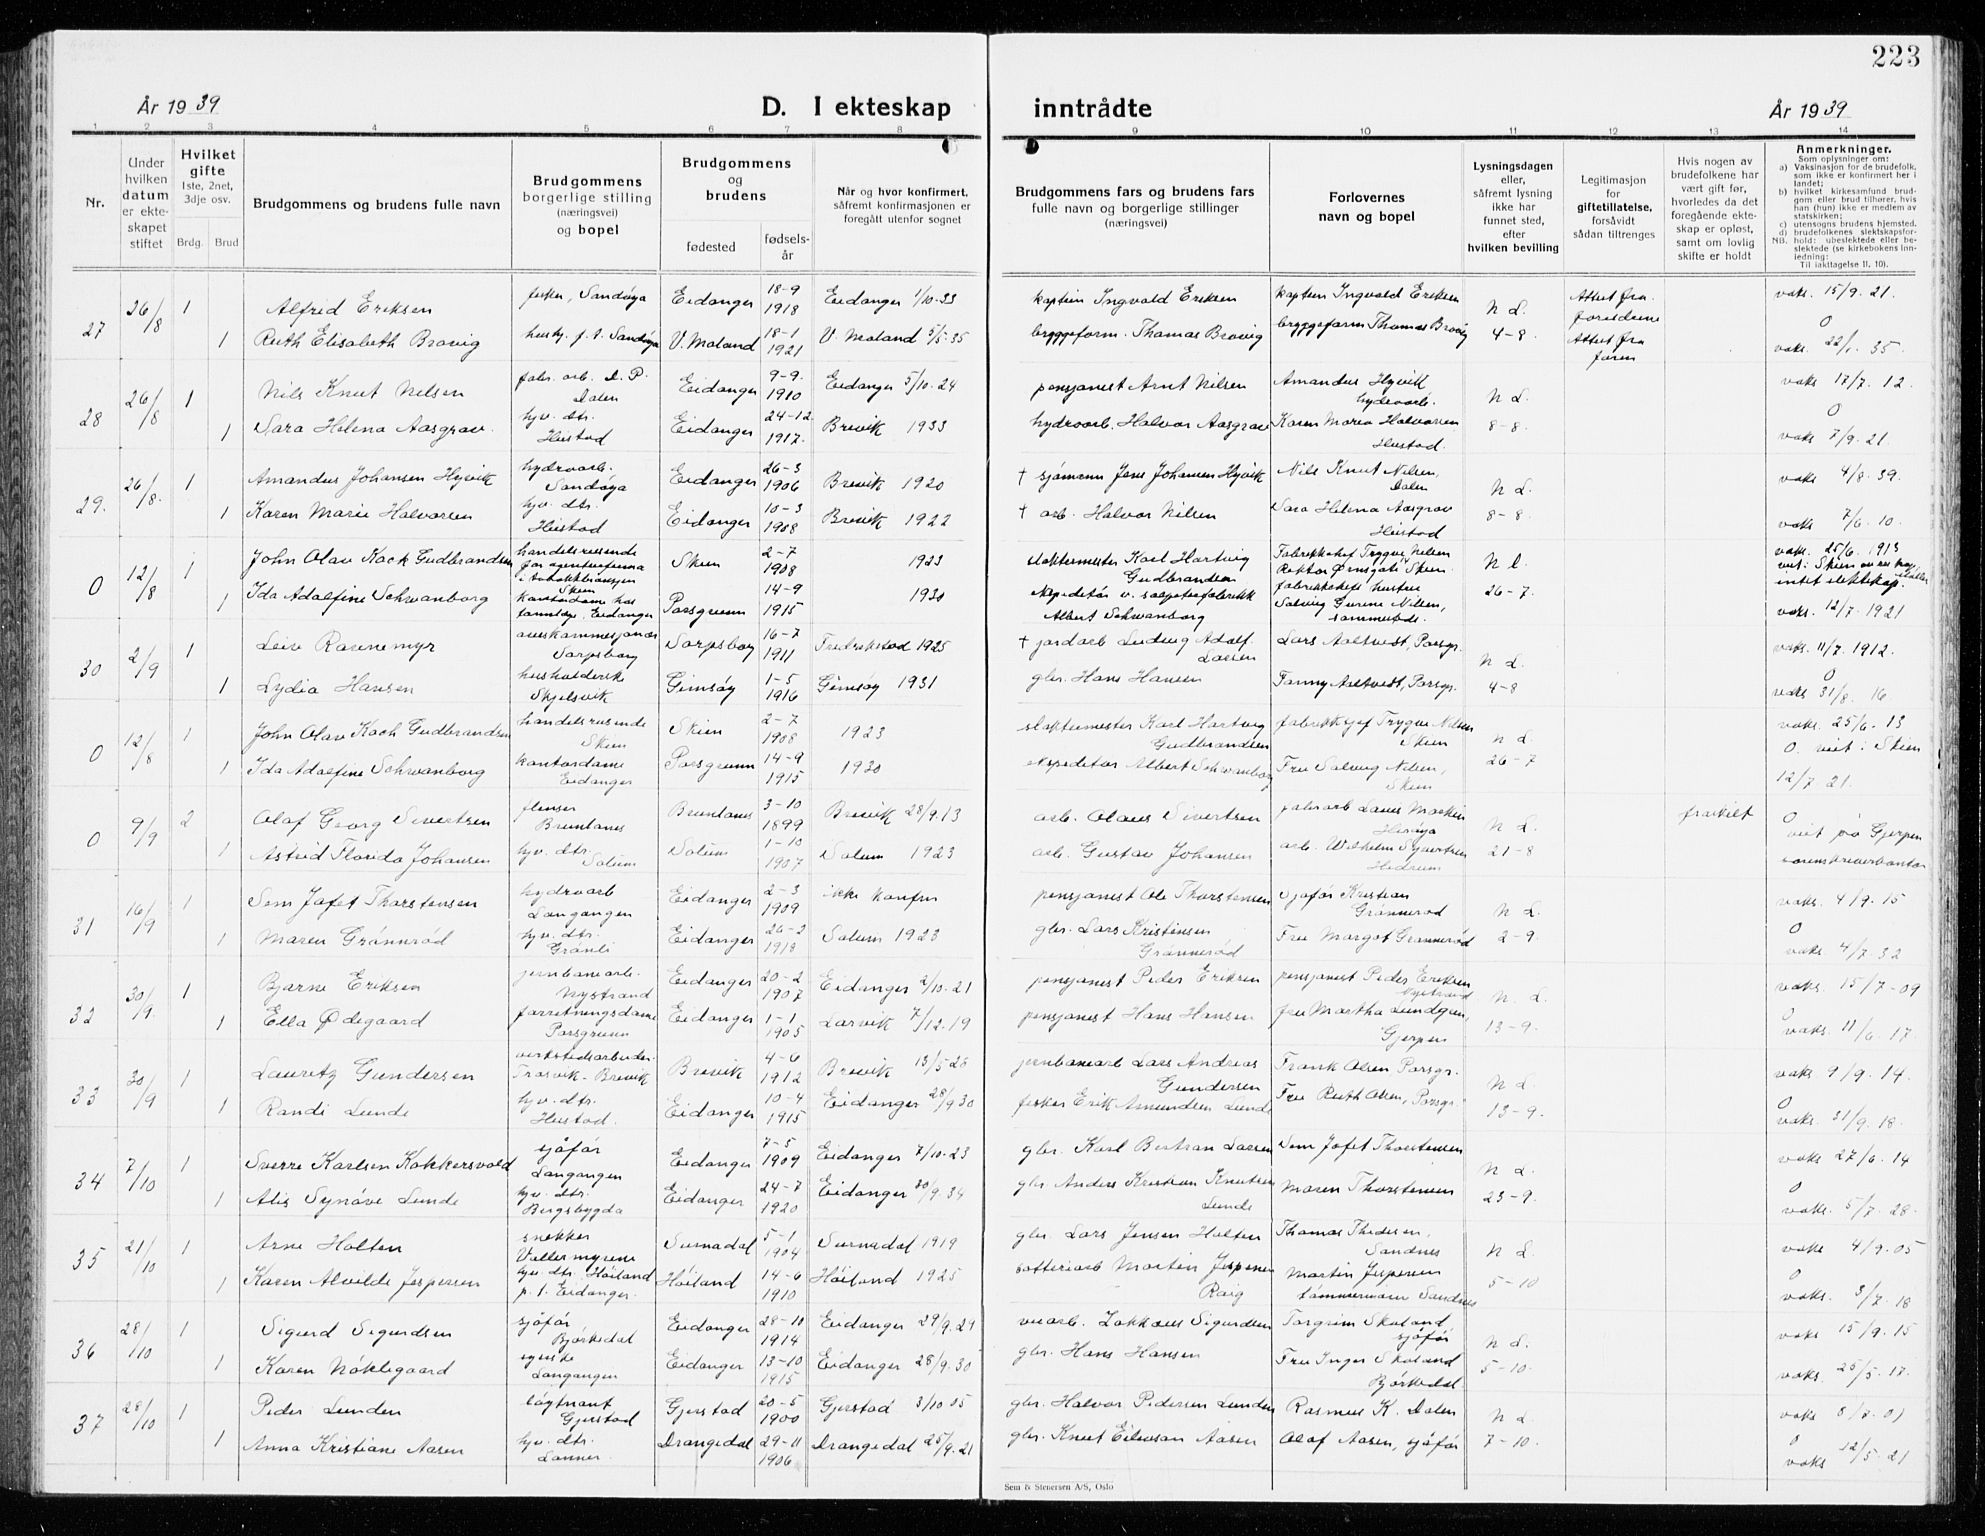 223
År 1939 D. I ekteskap inntrådte År 1939
1 2 3 4 5 6 7 8 9 10 11 12 13 14
Nr.
Under hvilken datum er ekteskapet stiftet
Hvilket gifte 1ste, 2net, 3dje osv.
Brdg. Brud
Brudgommens og brudens fulle navn
Brudgommens borgerlige stilling (næringsvei) og bopel
Brudgommens og brudens
fødested fødselsår
Når og hvor konfirmert, såfremt konfirmasjonen er foregått utenfor sognet
Brudgommens fars og brudens fars fulle navn og borgerlige stillinger (næringsvei)
Forlovernes navn og bopel
Lysningsdagen eller, såfremt lysning ikke har funnet sted, efter hvilken bevilling
Legitimasjon for giftetillatelse, forsåvidt sådan tiltrenges
Hvis nogen av brudefolkene har vært gift før, hvorledes da det foregående ekteskap er opløst, samt om lovlig skifte er holdt
Anmerkninger.
Som oplysninger om:
a) Vaksinasjon for de brudefolk, som ikke er konfirmert her i landet;
b) hvilket kirkesamfund brudgom eller brud tilhører, hvis han (hun) ikke er medlem av statskirken;
c) utensogns brudens hjemsted.
d) brudefolkenes slektskapsforhold: ubeslektede eller beslektede (se kirkebokens innledning:
NB. Til iakttagelse 11, 10).
27 26/8 1 Alfred Eriksen fisker, Sandøya Eidanger 18-9 1918 Eidanger 1/10-33 kaptein Ingvald Eriksen kaptein Ingvald Eriksen N L. 4-8 Attest fra foreldrene vaks. 15/9. 21.
1 Ruth Elisabeth Brovig Sandøya V. Moland 18-1 1921 V. Moland 5/5-35 bryggeform. Thomas Brovig bryggeform Thomas Brovig Attest fra faren 0 vaks. 22/1. 35.
28 26/8 1 Nils Knut Nilsen fabr. arb. D. P. Dalen Eidanger 9-9. 1910 Eidanger 5/10-24 pensjonist Arnt Nilsen Amandus Hyvik hydroarb. N L. 8-8. vaks 17/7. 12.
1 Sara Helena Aasgrav. hjv. dtr. Heistad Eidanger 24-12 1917. Brevik 1933 hydroarb. Halvor Aasgrav Karen Marie Halvorsen Heistad 0 vaks 7/9. 21.
29. 26/8. 1 Amandus Johansen Hyvik hydroarb. Sandøya Eidanger 26-3 1906 Brevik 1920 † sjømann Jens Johansen Hyvik Nils Knut Nilsen, Dalen N L. 8-8. vaks 4/8. 39.
1 Karen Marie Halvorsen hjv. dtr. Heistad Eidanger 10-3 1908 Brevik 1922 † arb. Halvor Nilsen Sara Helena Aasgrav Heistad vaks. 7/6. 10.
0 12/8 1 John Olav Kock Gudbrandsen handelsreisende for agenturfirma i tobakkbransjen Skien Skien 2-7 1908 1923 slaktermester Karl Hartvig Gudbrandsen Fabrikksjef Trygve Nilsen Rektor Ørnsgate Skien. N l. 26-7. vaks. 25/6. 1913 viet i Skien intet slektskap.
1 Ida Adolfine Schwanborg kontordame hos Eidanger Porsgrunn 14-9 1915 1930 ekspeditør v. salpeterfabrikk Albert Schwanborg fabrikksjefs hustru Solveig Nilsen, sammesteds. vaks. 12/7. 1921
30 2/9 1 Leiv Ravnemyr Sarpsborg Sarpsborg 16-7 1911 Fredrikstad 1925 † jordarb Ludvig Adolf Larsen Lars Aaltvedt, Porsgr. N L. 4-8 vaks. 11/7. 1912.
1 Lydia Hansen husholderske Skjelsvik Gimsøy 1-5 1916 Gimsøy 1931 gbr. Hans Hansen Fanny Aaltvedt, Porsgr. 0 vaks 31/8. 16.
0 12/8 1 John Olav Kock Gudbrandsen handelsreisende Skien Skien 2-7 1908 1923 slaktermester Karl Hartvig Gudbrandsen fabrikksjef Trygve Nilsen Skien N L. 26-7 vaks. 25/6-13
1 Ida Adolfine Schwanborg kontordame Eidanger Porsgrunn 14-9 1915 1930 ekspeditør Albert Schwanborg Fru Solveig Nilsen, Skien 0. viet i Skien 12/7 21.
0 9/9 2 Olaf Georg Sivertsen Brunlanes Brunlanes 3-10 1899 Brevik 28/9.13 arb. Olaus Sivertsen Herøya N L. 21-8 fraskilt 0 viet på Gjerpen sorenskriverkontor
1 Astrid Florida Johansen hjv. dtr. Solum Solum 1-10 1907 Solum 1923 arb. Gustav Johansen arb. Wilhelm Syvertsen Hedrum
31 16/9 1 Sem Jafet Thorstensen hydroarb Langangen Eidanger 2-3 1909 ikke konfirm pensjonist Ole Thorstensen Sjåfør Kristian Grønnerød N L. 2-9. vaks. 4/9. 15
1 Maren Grønnerød hjv. dtr. Grønli Eidanger 26-2 1918 Solum 1923 gbr. Lars Kristensen Grønnerød Fru Margot Grønnerød 0 vaks. 4/7. 32
32 30/9. 1 Bjarne Eriksen jernbanearb. Nystrand Eidanger 20-2 1907 Eidanger 2/10. 21 pensjonist Peder Eriksen pensjonist Peder Eriksen Nystrand N. L. 13-9. vaks. 15/7-09
1 Ella Ødegaard forretningsdame Porsgrunn Eidanger 1-1 1905 Larvik 7/12. 19 pensjonist Hans Hansen fru Martha Lundgren, Gjerpen 0 vaks. 11/6. 17.
33 30/9 1 Lauretz Gundersen verkstedsarbeider Trosvik-Brevik Brevik 4-6 1912 Brevik 13/5-26 jernbanearb Lars Andreas Gundersen Frank Olsen Porsgr. N L. 13-9. vaks. 9/9. 14.
1 Randi Lunde hjv. dtr. Heistad. Eidanger 10-4 1915 Eidanger 28/9 30 fisker Erik Amundsen Lunde Fru Ruth Olsen, Porsgr. 0 vaks. 31/9. 18.
34 7/10 1 Sverre Karlsen Kokkersvold sjåfør Langangen Eidanger 7-5 1909 Eidanger 7/10-23 gbr. Karl Bertran Larsen Sem Jafet Thorstensen N L. 23-9. vaks. 27/6. 14
1 Alis Synøve Lunde hjv. dtr. Bergsbygda Eidanger 24-7 1920 Eidanger 30/9. 34 gbr. Anders Kristian Knutsen Lunde Maren Thorstensen 0 vaks. 5/7. 28.
35 21/10 1 Arne Holten snekker Vallermyrene Surnadal 5-1 1904 Surnadal 1919 gbr. Lars Jensen Holten Thomas Thedersen, Sandnes N L. 5-10 vaks 4/9. 05
1 Karen Alvilde Jespersen hjv. dtr. Høiland p. t. Eidanger. Høiland 14-6 1910 Høiland 1925 Martin Jespersen Martin Jespersen tømmermann Sandnes 0 vaks. 3/7. 18
36 28/10 1 Sigurd Sigurdsen sjåfør Bjørkedal Eidanger 28-10 1914 Eidanger 29/9. 29 Zakkeus Sigurdsen Torgrim Skoland, sjåfør N L. 5-10. vaks 15/9. 15
1 Karen Nøklegaard Langangen Eidanger 13-10 1915 Eidanger 28/9. 30 gbr. Hans Hansen Fru Inger Skoland Bjørkedal. vaks. 25/5. 17.
37 28/10 1 Peder Lunden løgtnant Gjerstad Gjerstad 20-5 1900 Gjerstad 3/10 05 gbr. Halvor Pedersen Lunden Rasmus K. Dalen N L. 7-10. vaks 8/7. 01
1 Anna Kristiane Aasen hjv. dtr. Lanner. Drangedal 29-11 1906 Drangedal 25/9. 21 gbr. Knut Eilevsen Aasen Olaf Aasen, sjåfør 0 vaks 12/5. 21
Sem & Stenersen A/S, Oslo